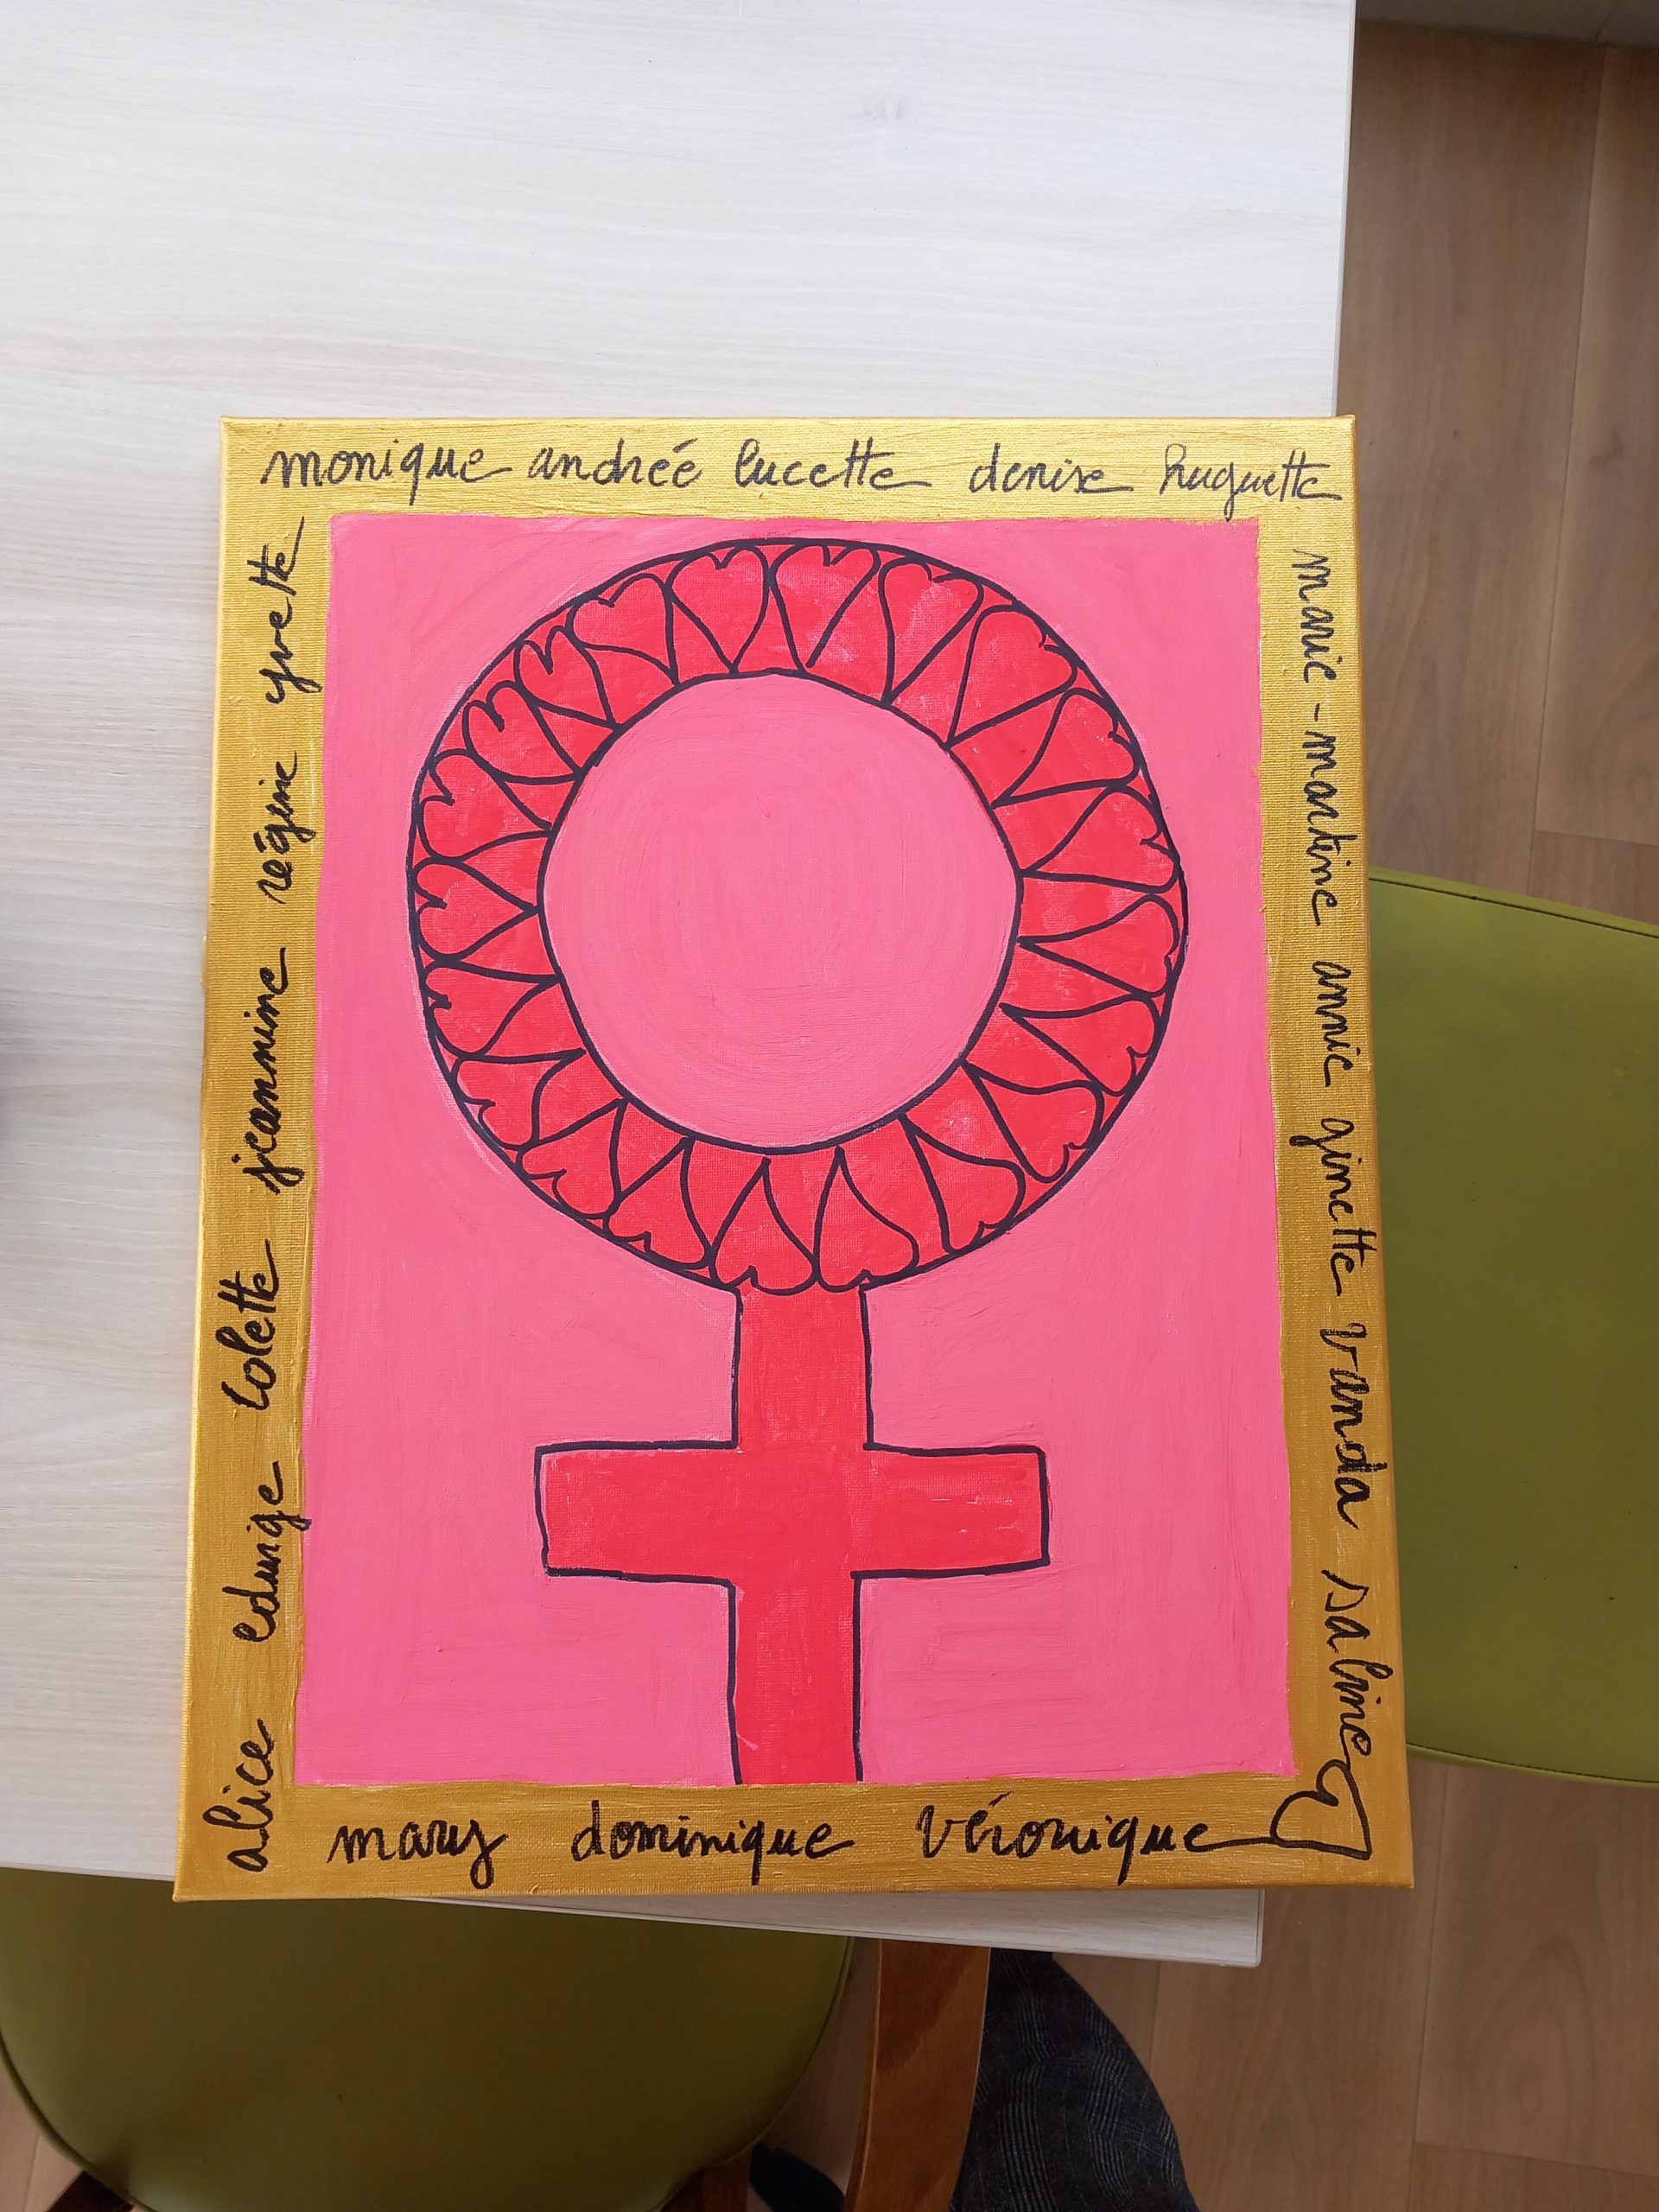 monique andrée lucette denise huguette
marie-martine annie ginette vanda sabine
mary dominique véronique
alice edwige colette jeannine régine yvette